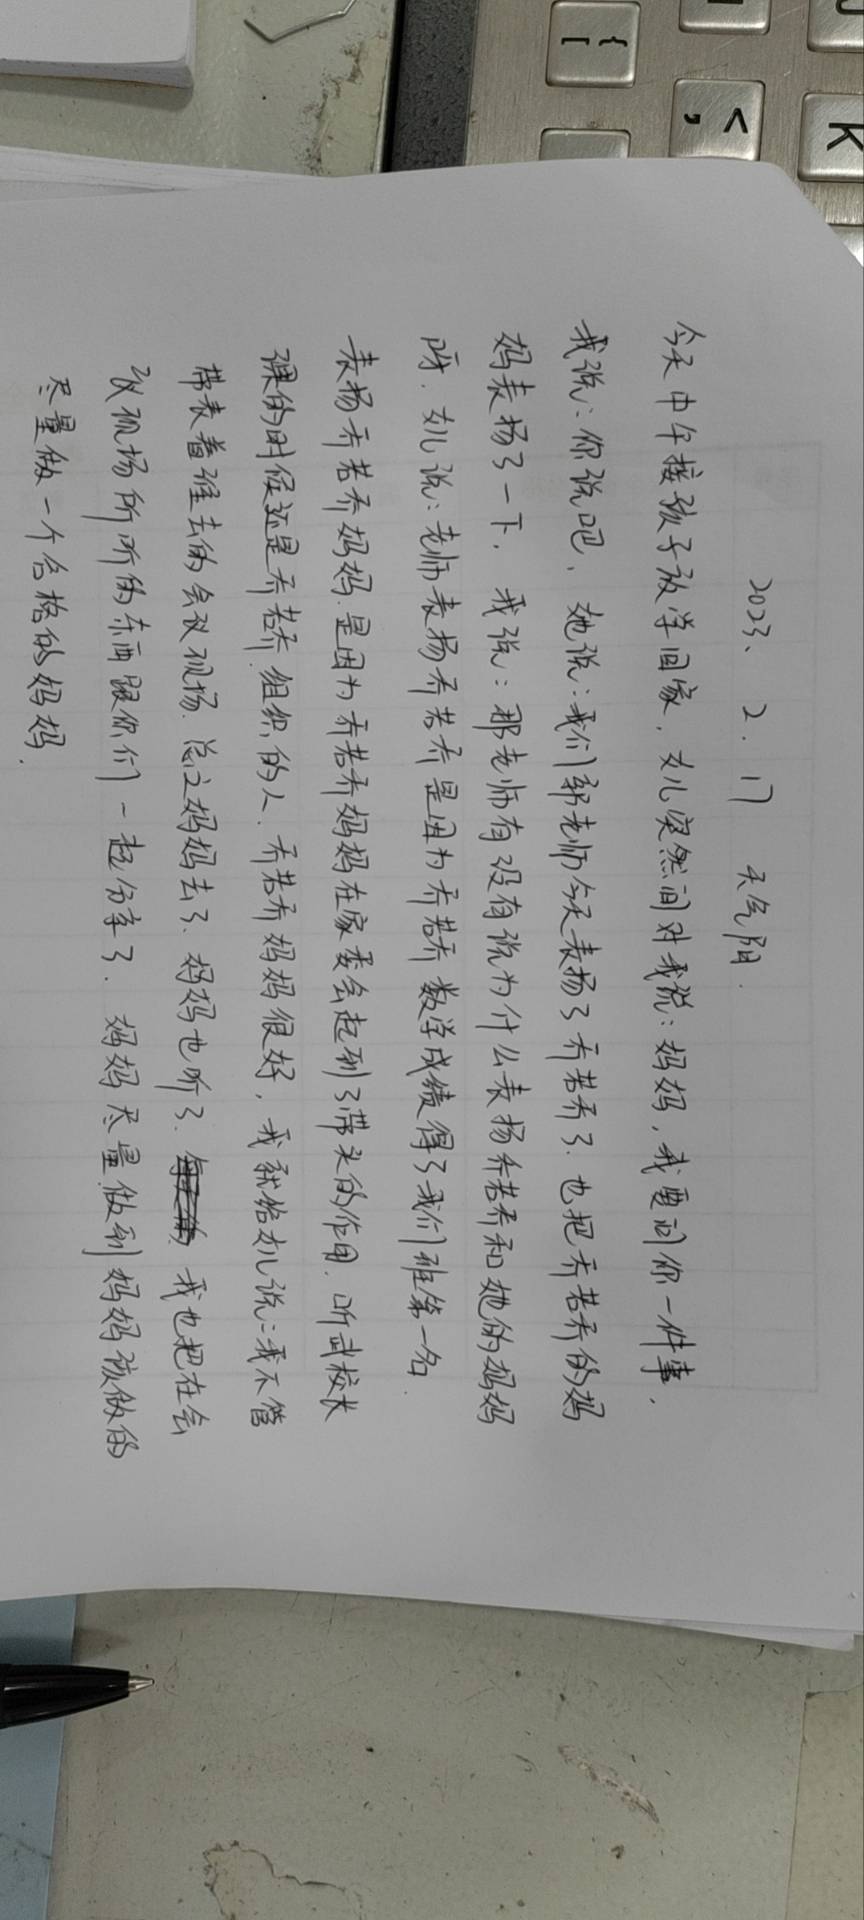 2023、2．17 天气阴．
今天中午接孩子放学回家，女儿突然间对我说：妈妈，我要问你一件事，
我说：你说吧，她说：我们郭老师今天表扬了乔若乔了．也把乔若乔的妈
妈表扬了一下， 我说：那老师有没有说为什么表扬乔若乔和她的妈妈
呀．女儿说：老师表扬乔若乔是因为乔若乔数学成绩得了我们班第一名．
表扬乔若乔妈妈．是因为乔若乔妈妈在家委会起到了带头的作用．听武校长
课的时候还是乔若乔．组织的人．乔若乔妈妈很好，我就给女儿说：我不管
带表着谁去的会议现场．总之妈妈去了、妈妈也听了． 我也把在会
议现场所听的东西跟你们一起分享了． 妈妈尽量做到妈妈该做的
尽量做一个合格的妈妈．
{ [
< ,
K